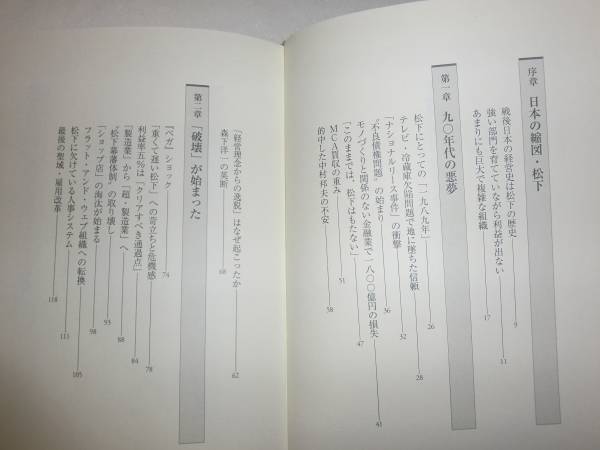 序章　日本の縮図・松下
戦後日本の経営史は松下の歴史 9
強い部門を育てていながら利益が出ない 11
あまりにも巨大で複雑な組織 17
第一章　九〇年代の悪夢
松下にとっての「一九八九年」 26
テレビ・冷蔵庫欠陥問題で地に墜ちた信頼 28
「ナショナルリース事件」の衝撃 32
“不良債権問題”の始まり 36
モノづくりと関係のない金融業で一八〇〇億円の損失 41
「このままでは、松下はもたない」 47
MCA買収の重み 51
的中した中村邦夫の不安 58
「経営理念からの逸脱」はなぜ起こったか 62
森下洋一の英断 68
第二章　「破壊」が始まった
「ベガ」ショック 74
「重くて遅い松下」への苛立ちと危機感 78
利益率五%は「クリアすべき通過点」 84
「製造業」から「超・製造業」へ 88
“松下幕藩体制”の取り壊し 93
「ショップ店」の淘汰が始まる 98
フラット・アンド・ウェブ組織への転換 105
松下に欠けている人事システム 111
最後の聖域・雇用改革 118